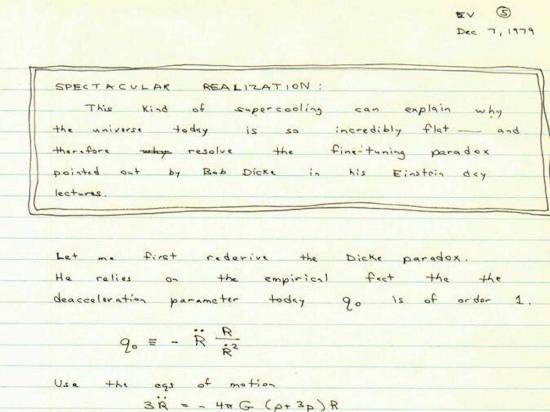 EV ⑤
Dec 7, 1979
SPECTACULAR REALIZATION:
This kind of supercooling can explain why
the universe today is so incredibly flat — and
therefore resolve the fine-tuning paradox
pointed out by Bob Dicke in his Einstein day
lectures.
Let me first rederive the Dicke paradox.
He relies on the empirical fact the the
deacceleration parameter today q₀ is of order 1.
q₀ ≡ - R̈ R/Ṙ²
Use the eqs of motion
3R̈ = - 4π G (ρ + 3p) R